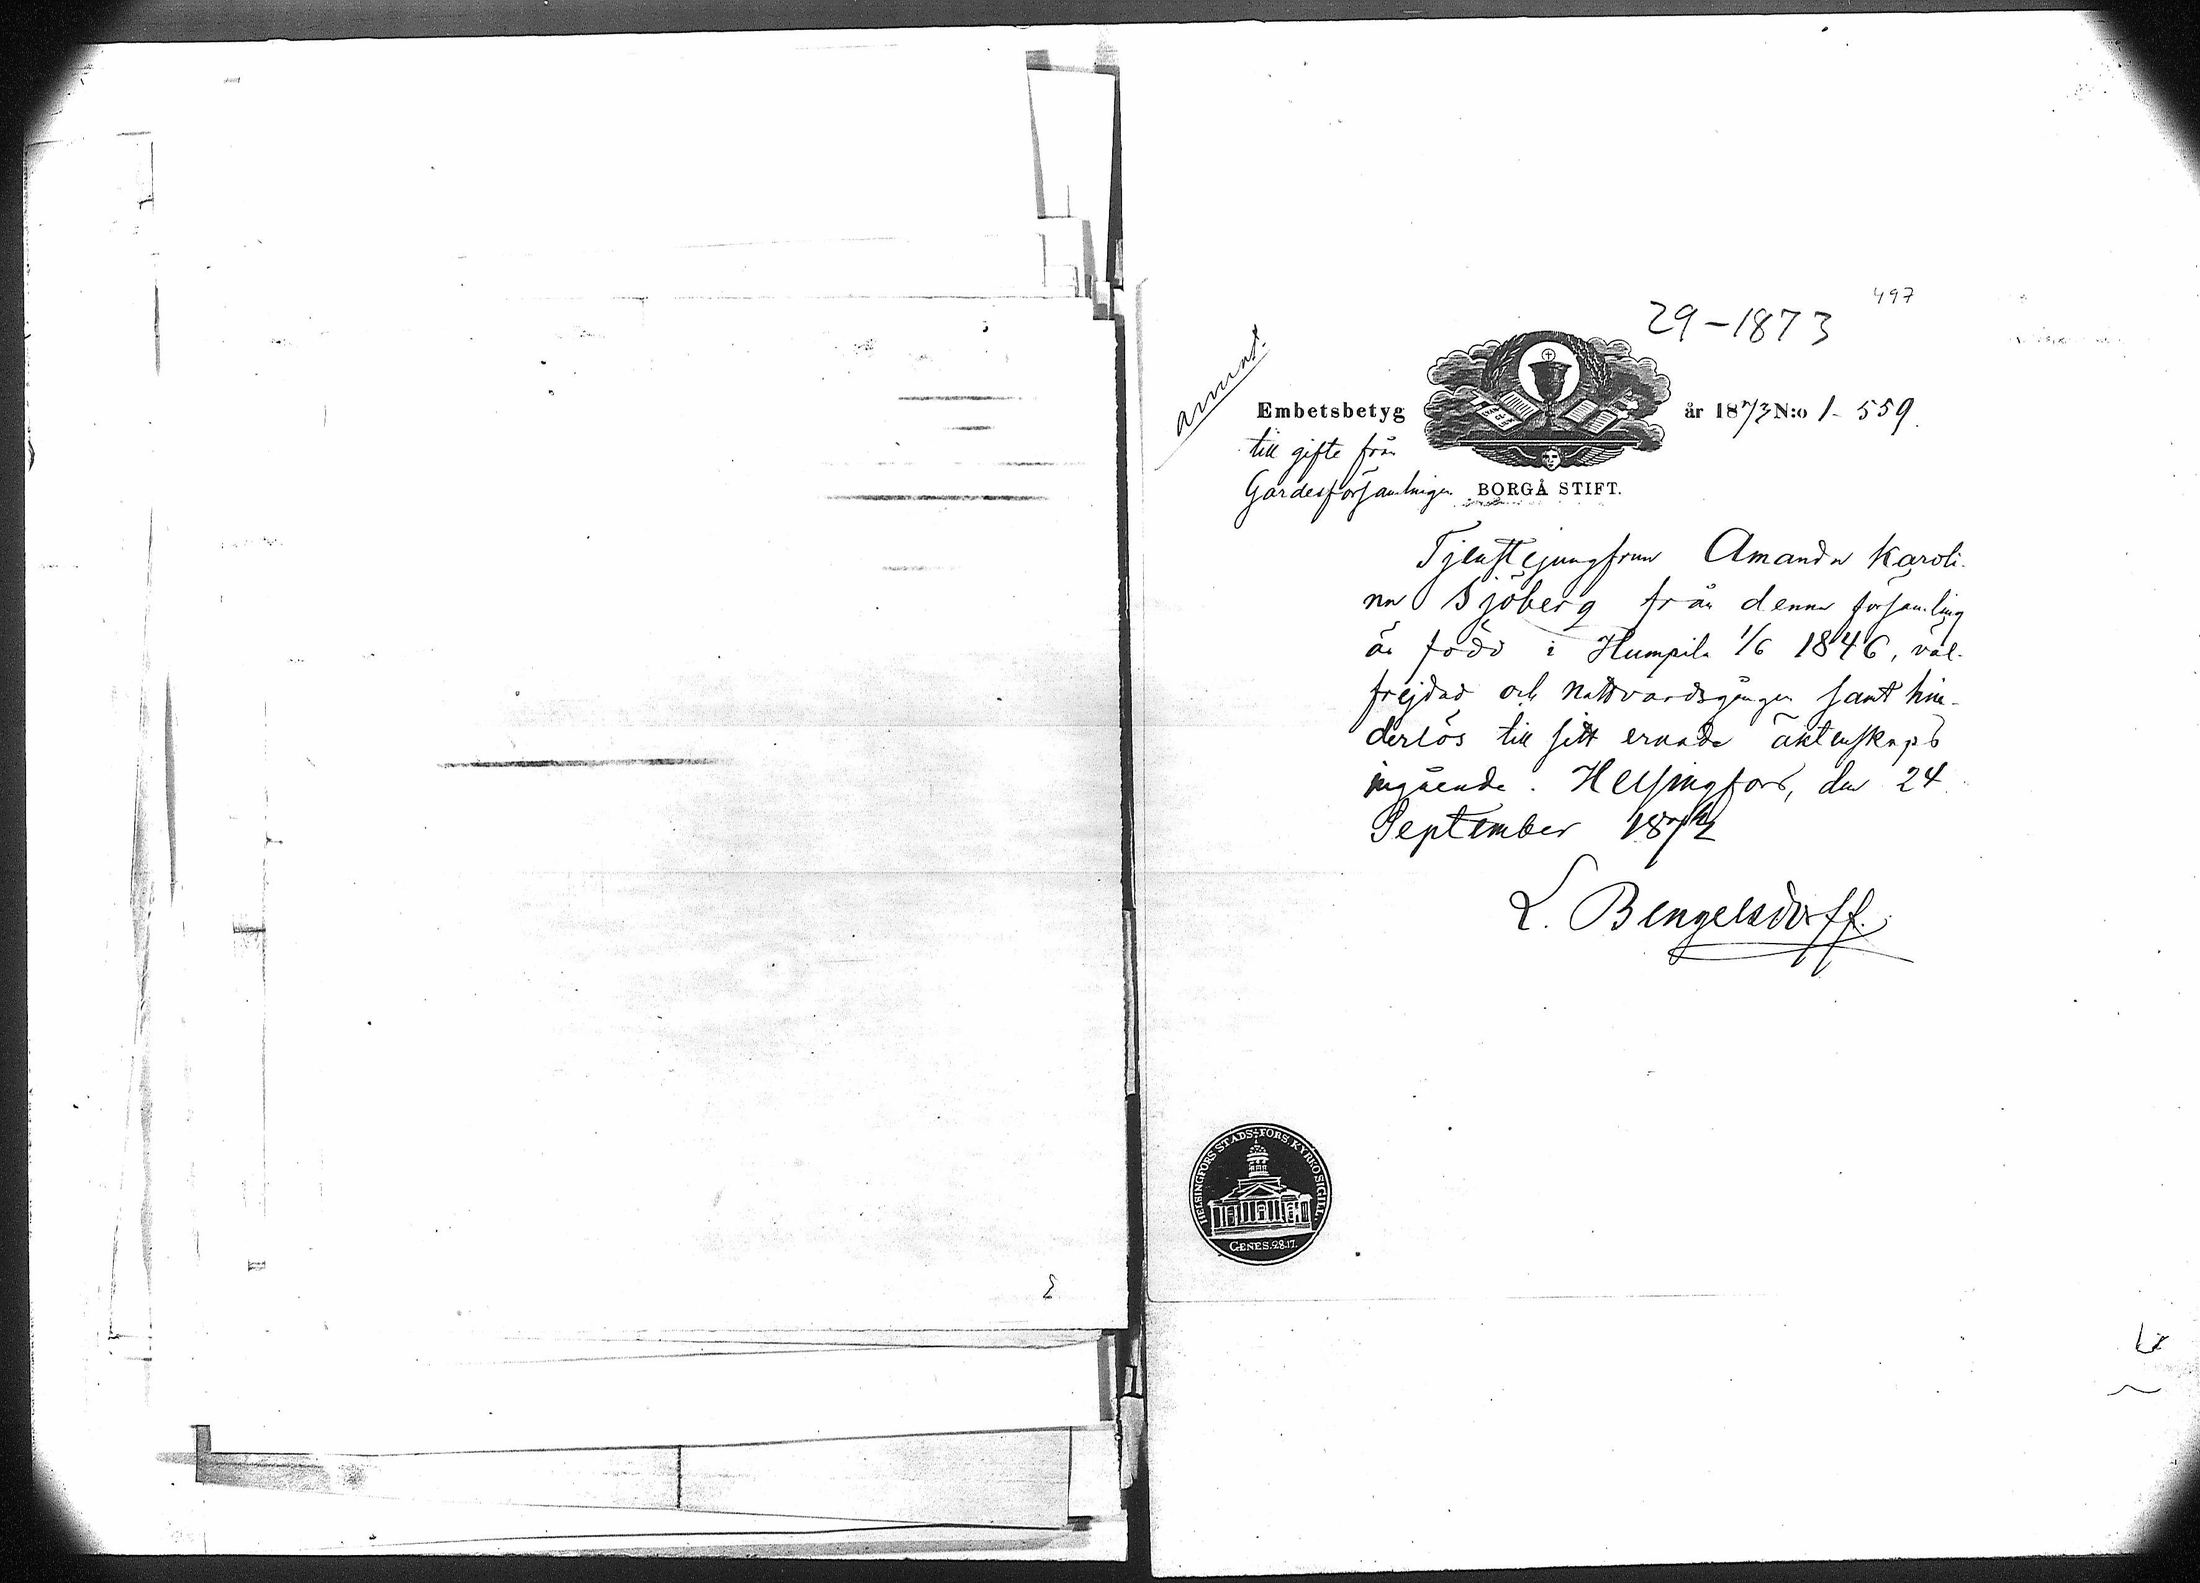 497
29–1873
annot.
Embetsbetyg år 1873 N:o 1– 559.
till gifte från
Gardesförsamlingen BORGÅ STIFT.
Tjenstejungfrun Amanda Karoli-
na Sjöberg från denna församling
är född i Humpila 1/6 1846, väl-
frejdad och nattvardsgången samt hin-
derlös till sitt ernade äktenskaps
ingående. Helsingfors, den 24
September 1872
L. Bengelsdorff.
HELSINGFORS STADS-FÖRS. KYRKOSIGILL.
GENES.28.17.